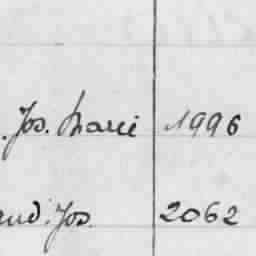 . Jos. Marie 1996
and. Jos. 2062